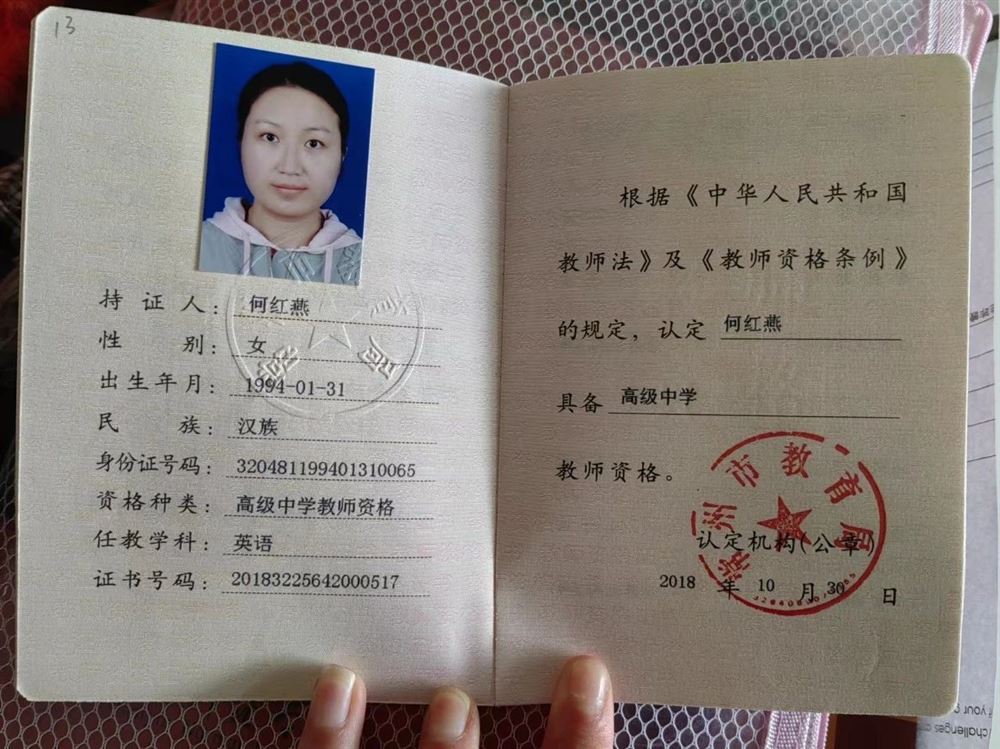 13
持证人：何红燕
性别：女
出生年月：1994-01-31
民族：汉族
身份证号码：320481199401310065
资格种类：高级中学教师资格
任教学科：英语
证书号码：20183225642000517
根据《中华人民共和国
教师法》及《教师资格条例》
的规定，认定 何红燕
具备 高级中学
教师资格。
常州市教育局
认定机构(公章)
2018 年 10 月 30 日
challenges